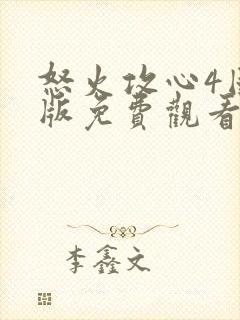 怒火攻心4国
版免費觀看
李鑫文